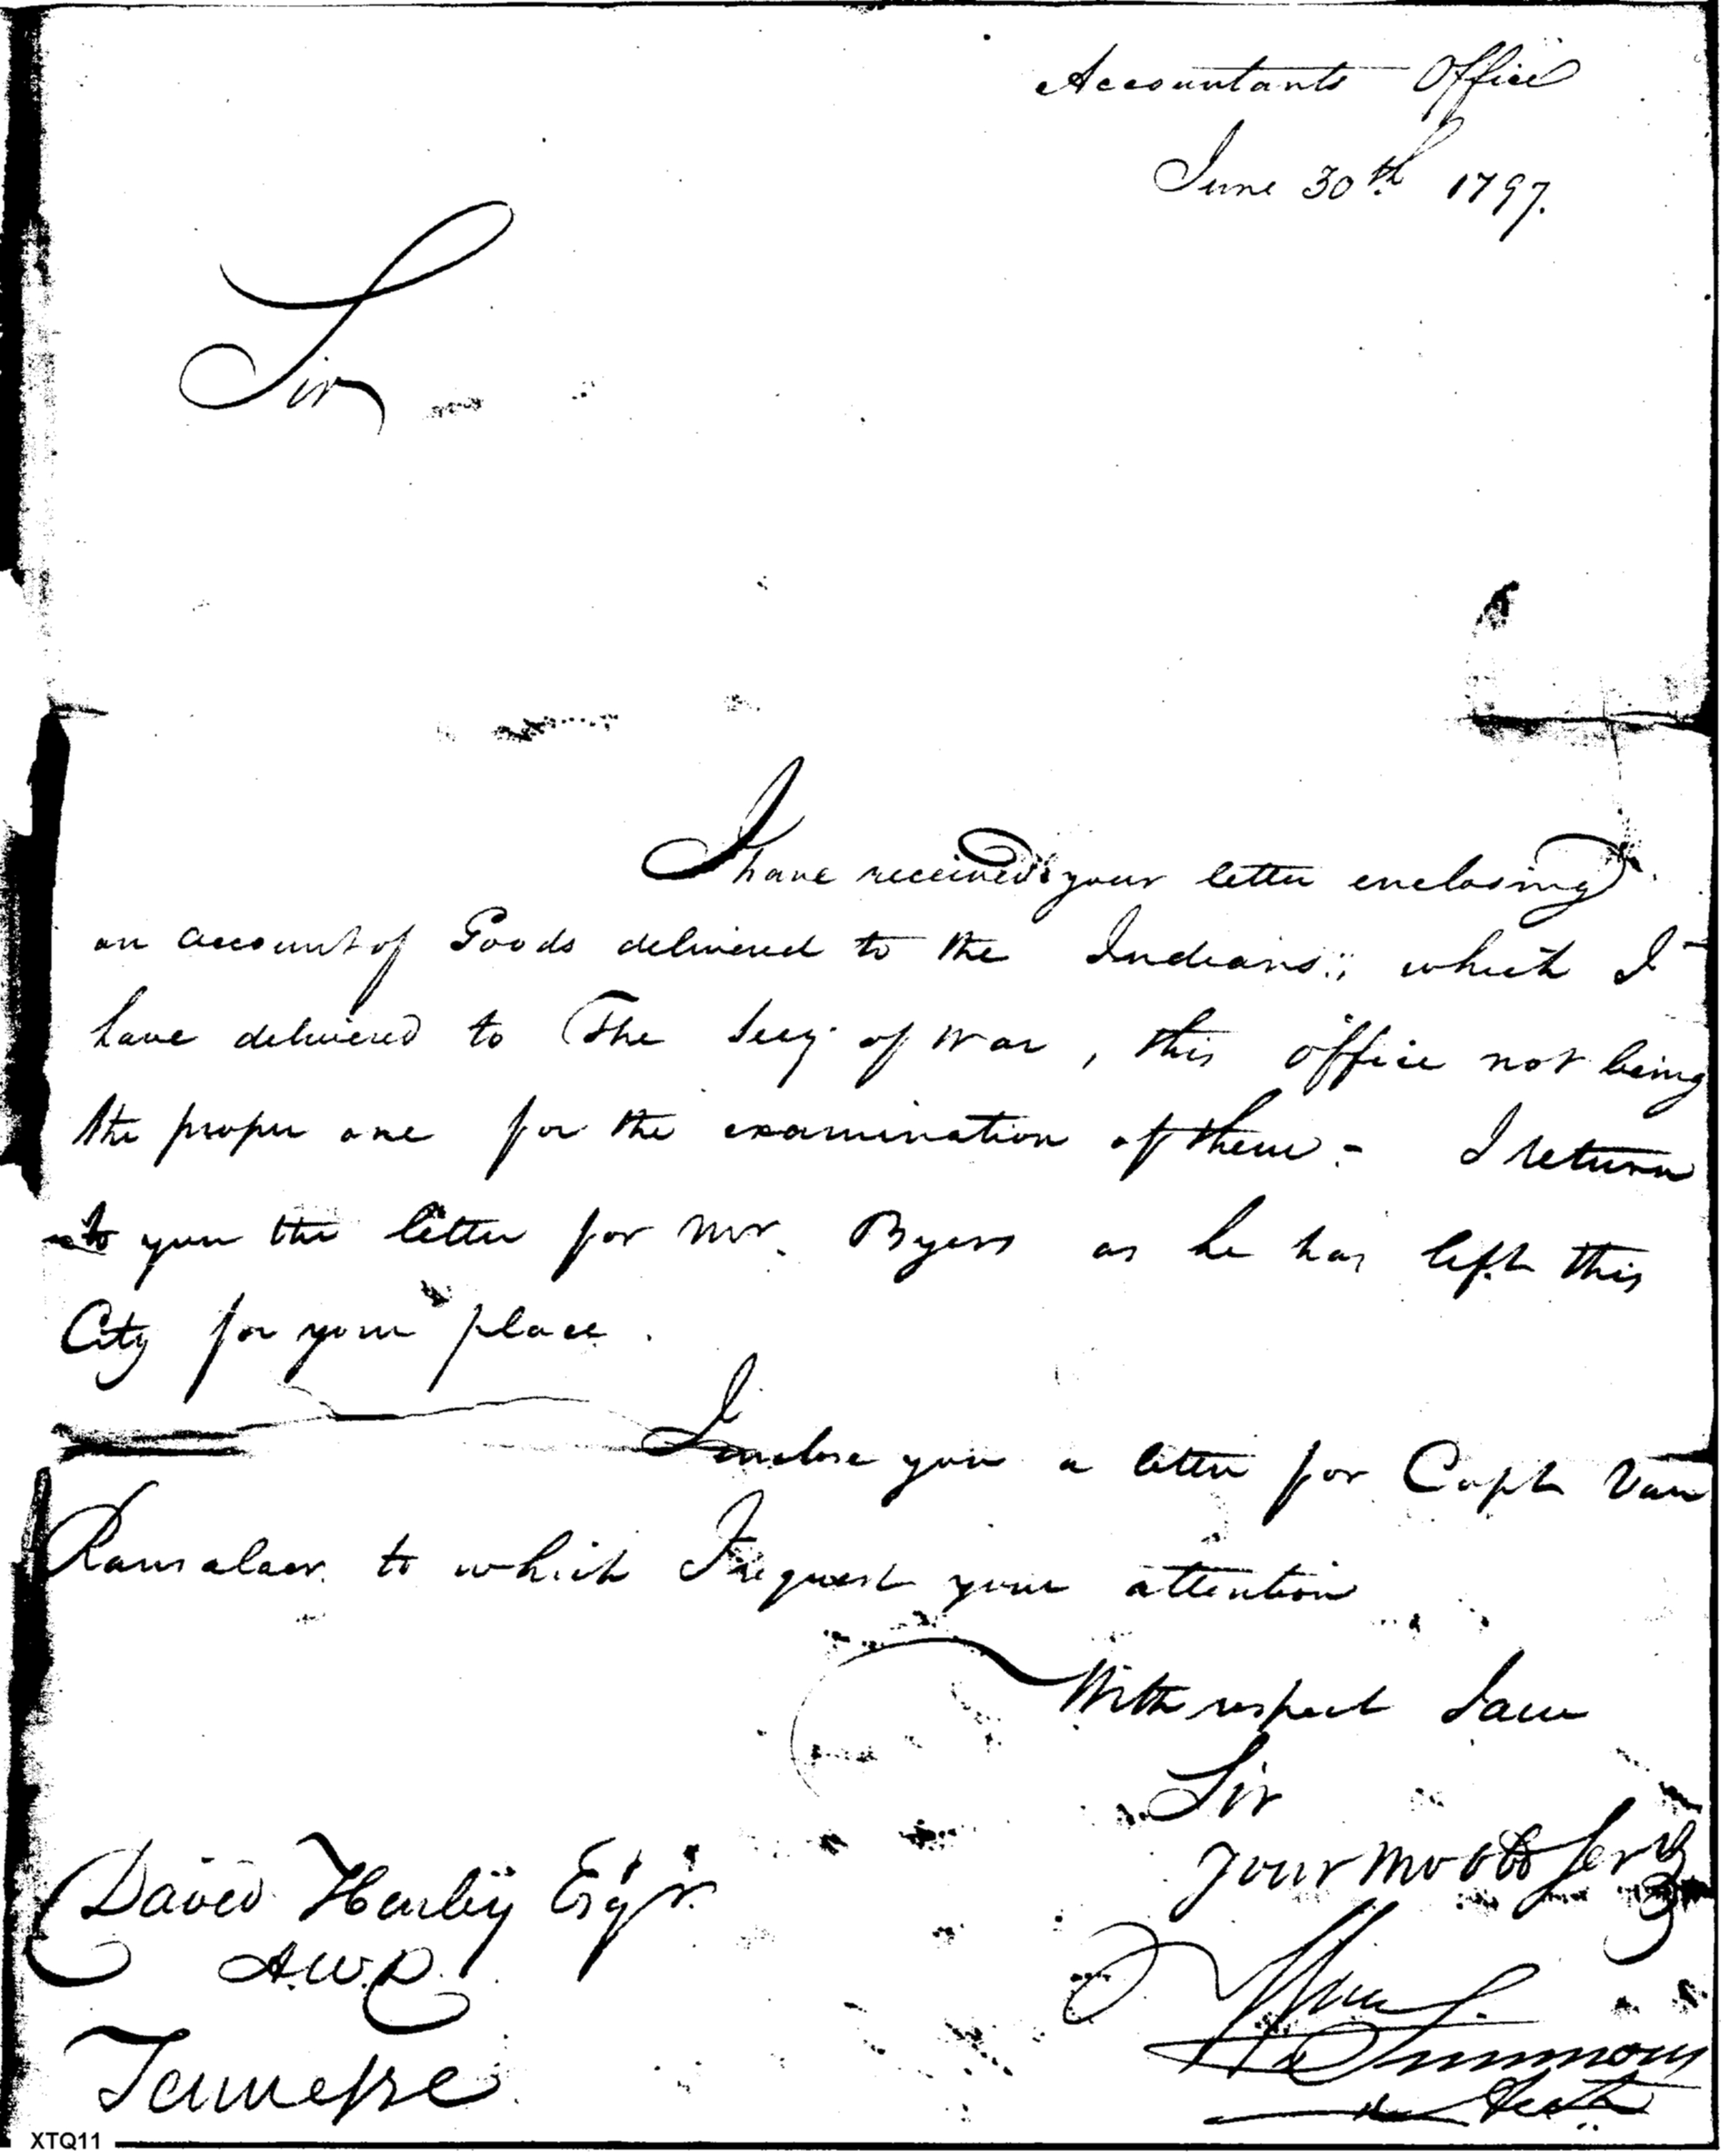 Accountants Office
June 30th 1797.
Sir
I have received your letter enclosing
an account of Goods delivered to the Indians, which I
have delivered to The Secy. of War, this office not being
the proper one for the examination of them - I return
to you the letter for Mr. Byers as he has left this
City for your place.
I enclose you a letter for Capt Van
Ransalaer. to which I request your attention
With respect I am
Sir
your mo obt Servt
David Henley Esqr.
A.W.D.
Tennessee
Wm Simmons
Acct.
XTQ11